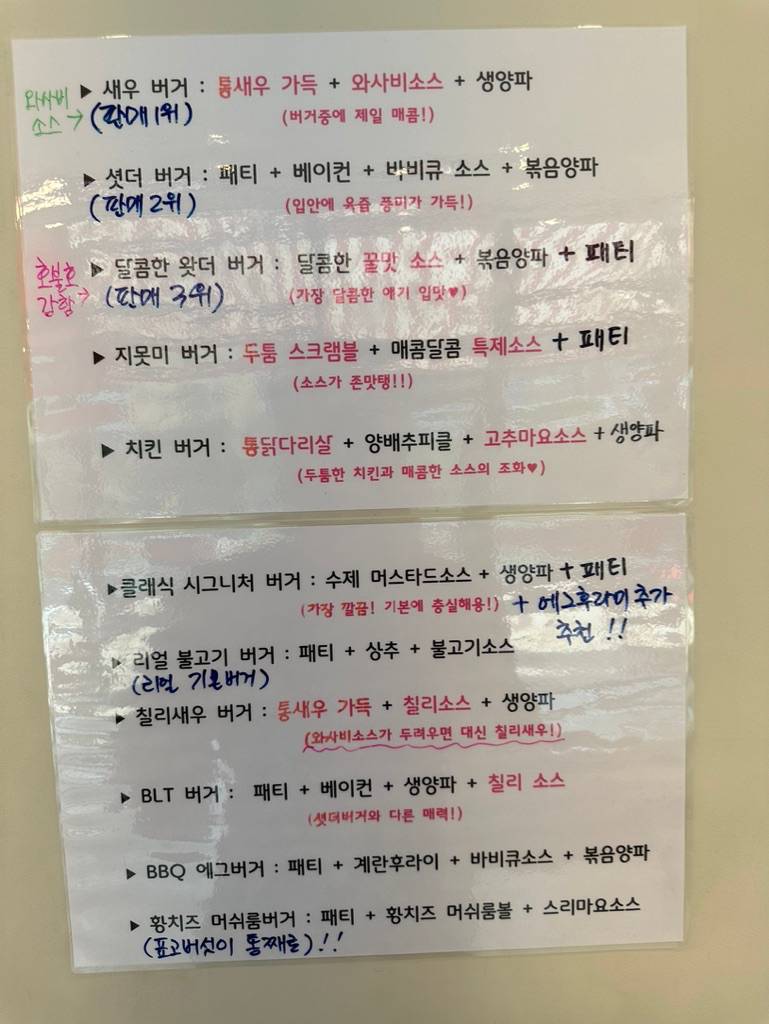 ▶ 새우 버거 : 통새우 가득 + 와사비소스 + 생양파
와사비
소스 →
(판매 1위)
(버거중에 제일 매콤!)
▶ 셧더 버거 : 패티 + 베이컨 + 바비큐 소스 + 볶음양파
(판매 2위)
(입안에 육즙 풍미가 가득!)
▶ 달콤한 왓더 버거 : 달콤한 꿀맛 소스 + 볶음양파 + 패티
호불호
강함 →
(판매 3위)
(가장 달콤한 애기 입맛♥)
▶ 지못미 버거 : 두툼 스크램블 + 매콤달콤 특제소스 + 패티
(소스가 존맛탱!!)
▶ 치킨 버거 : 통닭다리살 + 양배추피클 + 고추마요소스 + 생양파
(두툼한 치킨과 매콤한 소스의 조화♥)
▶클래식 시그니처 버거 : 수제 머스타드소스 + 생양파 + 패티
(가장 깔끔! 기본에 충실해용!) + 에그후라이 추가
추천 !!
▶ 리얼 불고기 버거 : 패티 + 상추 + 불고기소스
(리얼 기본버거)
▶ 칠리새우 버거 : 통새우 가득 + 칠리소스 + 생양파
(와사비소스가 두려우면 대신 칠리새우!)
▶ BLT 버거 : 패티 + 베이컨 + 생양파 + 칠리 소스
(셧더버거와 다른 매력!)
▶ BBQ 에그버거 : 패티 + 계란후라이 + 바비큐소스 + 볶음양파
▶ 황치즈 머쉬룸버거 : 패티 + 황치즈 머쉬룸볼 + 스리마요소스
(표고버섯이 통째로) !!